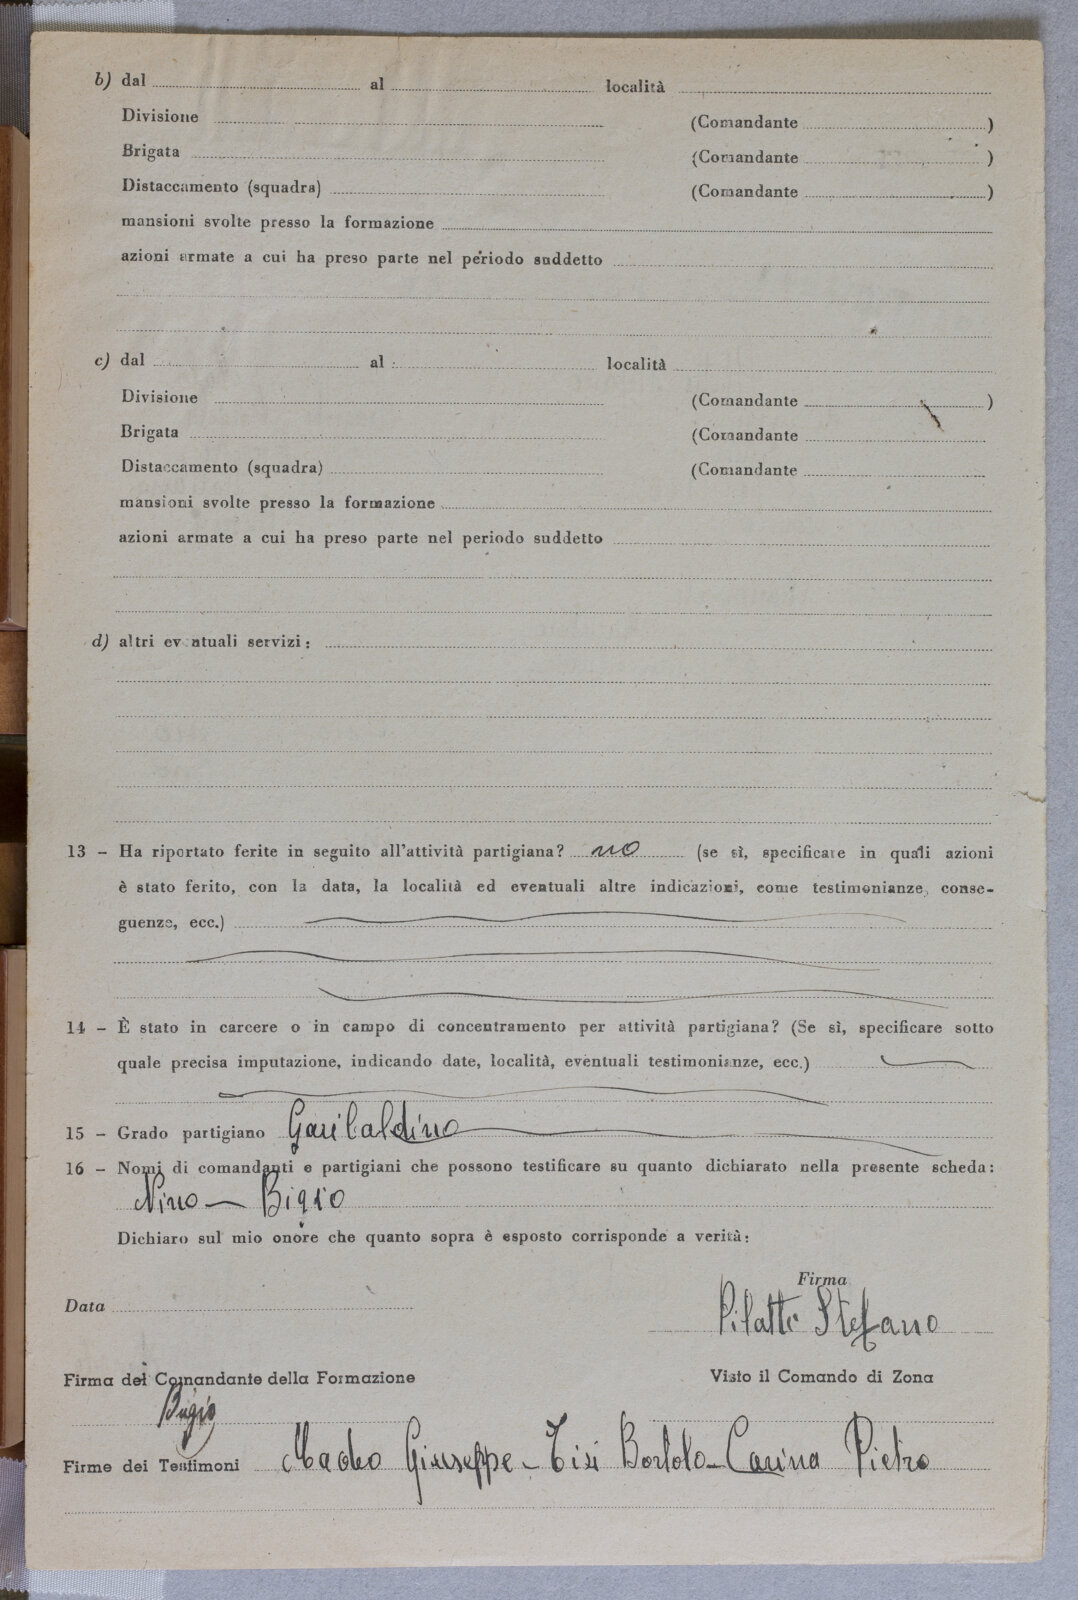 b) dal ........ al ........ località ........
Divisione ........ (Comandante ........)
Brigata ........ (Comandante ........)
Distaccamento (squadra) ........ (Comandante ........)
mansioni svolte presso la formazione ........
azioni armate a cui ha preso parte nel periodo suddetto ........
c) dal ........ al ........ località ........
Divisione ........ (Comandante ........)
Brigata ........ (Comandante ........
Distaccamento (squadra) ........ (Comandante ........
mansioni svolte presso la formazione ........
azioni armate a cui ha preso parte nel periodo suddetto ........
d) altri eventuali servizi: ........
13 – Ha riportato ferite in seguito all'attività partigiana? no (se sì, specificare in quali azioni
è stato ferito, con la data, la località ed eventuali altre indicazioni, come testimonianze, conse-
guenze, ecc.) ........
14 – È stato in carcere o in campo di concentramento per attività partigiana? (Se sì, specificare sotto
quale precisa imputazione, indicando date, località, eventuali testimonianze, ecc.) ........
15 – Grado partigiano Garibaldino
16 – Nomi di comandanti e partigiani che possono testificare su quanto dichiarato nella presente scheda:
Nino — Bigio
Dichiaro sul mio onore che quanto sopra è esposto corrisponde a verità:
Firma
Data ........ Pilatti Stefano
Firma del Comandante della Formazione Visto il Comando di Zona
Bigio
Firme dei Testimoni Giuseppe - Tisi Bortolo - Carina Pietro